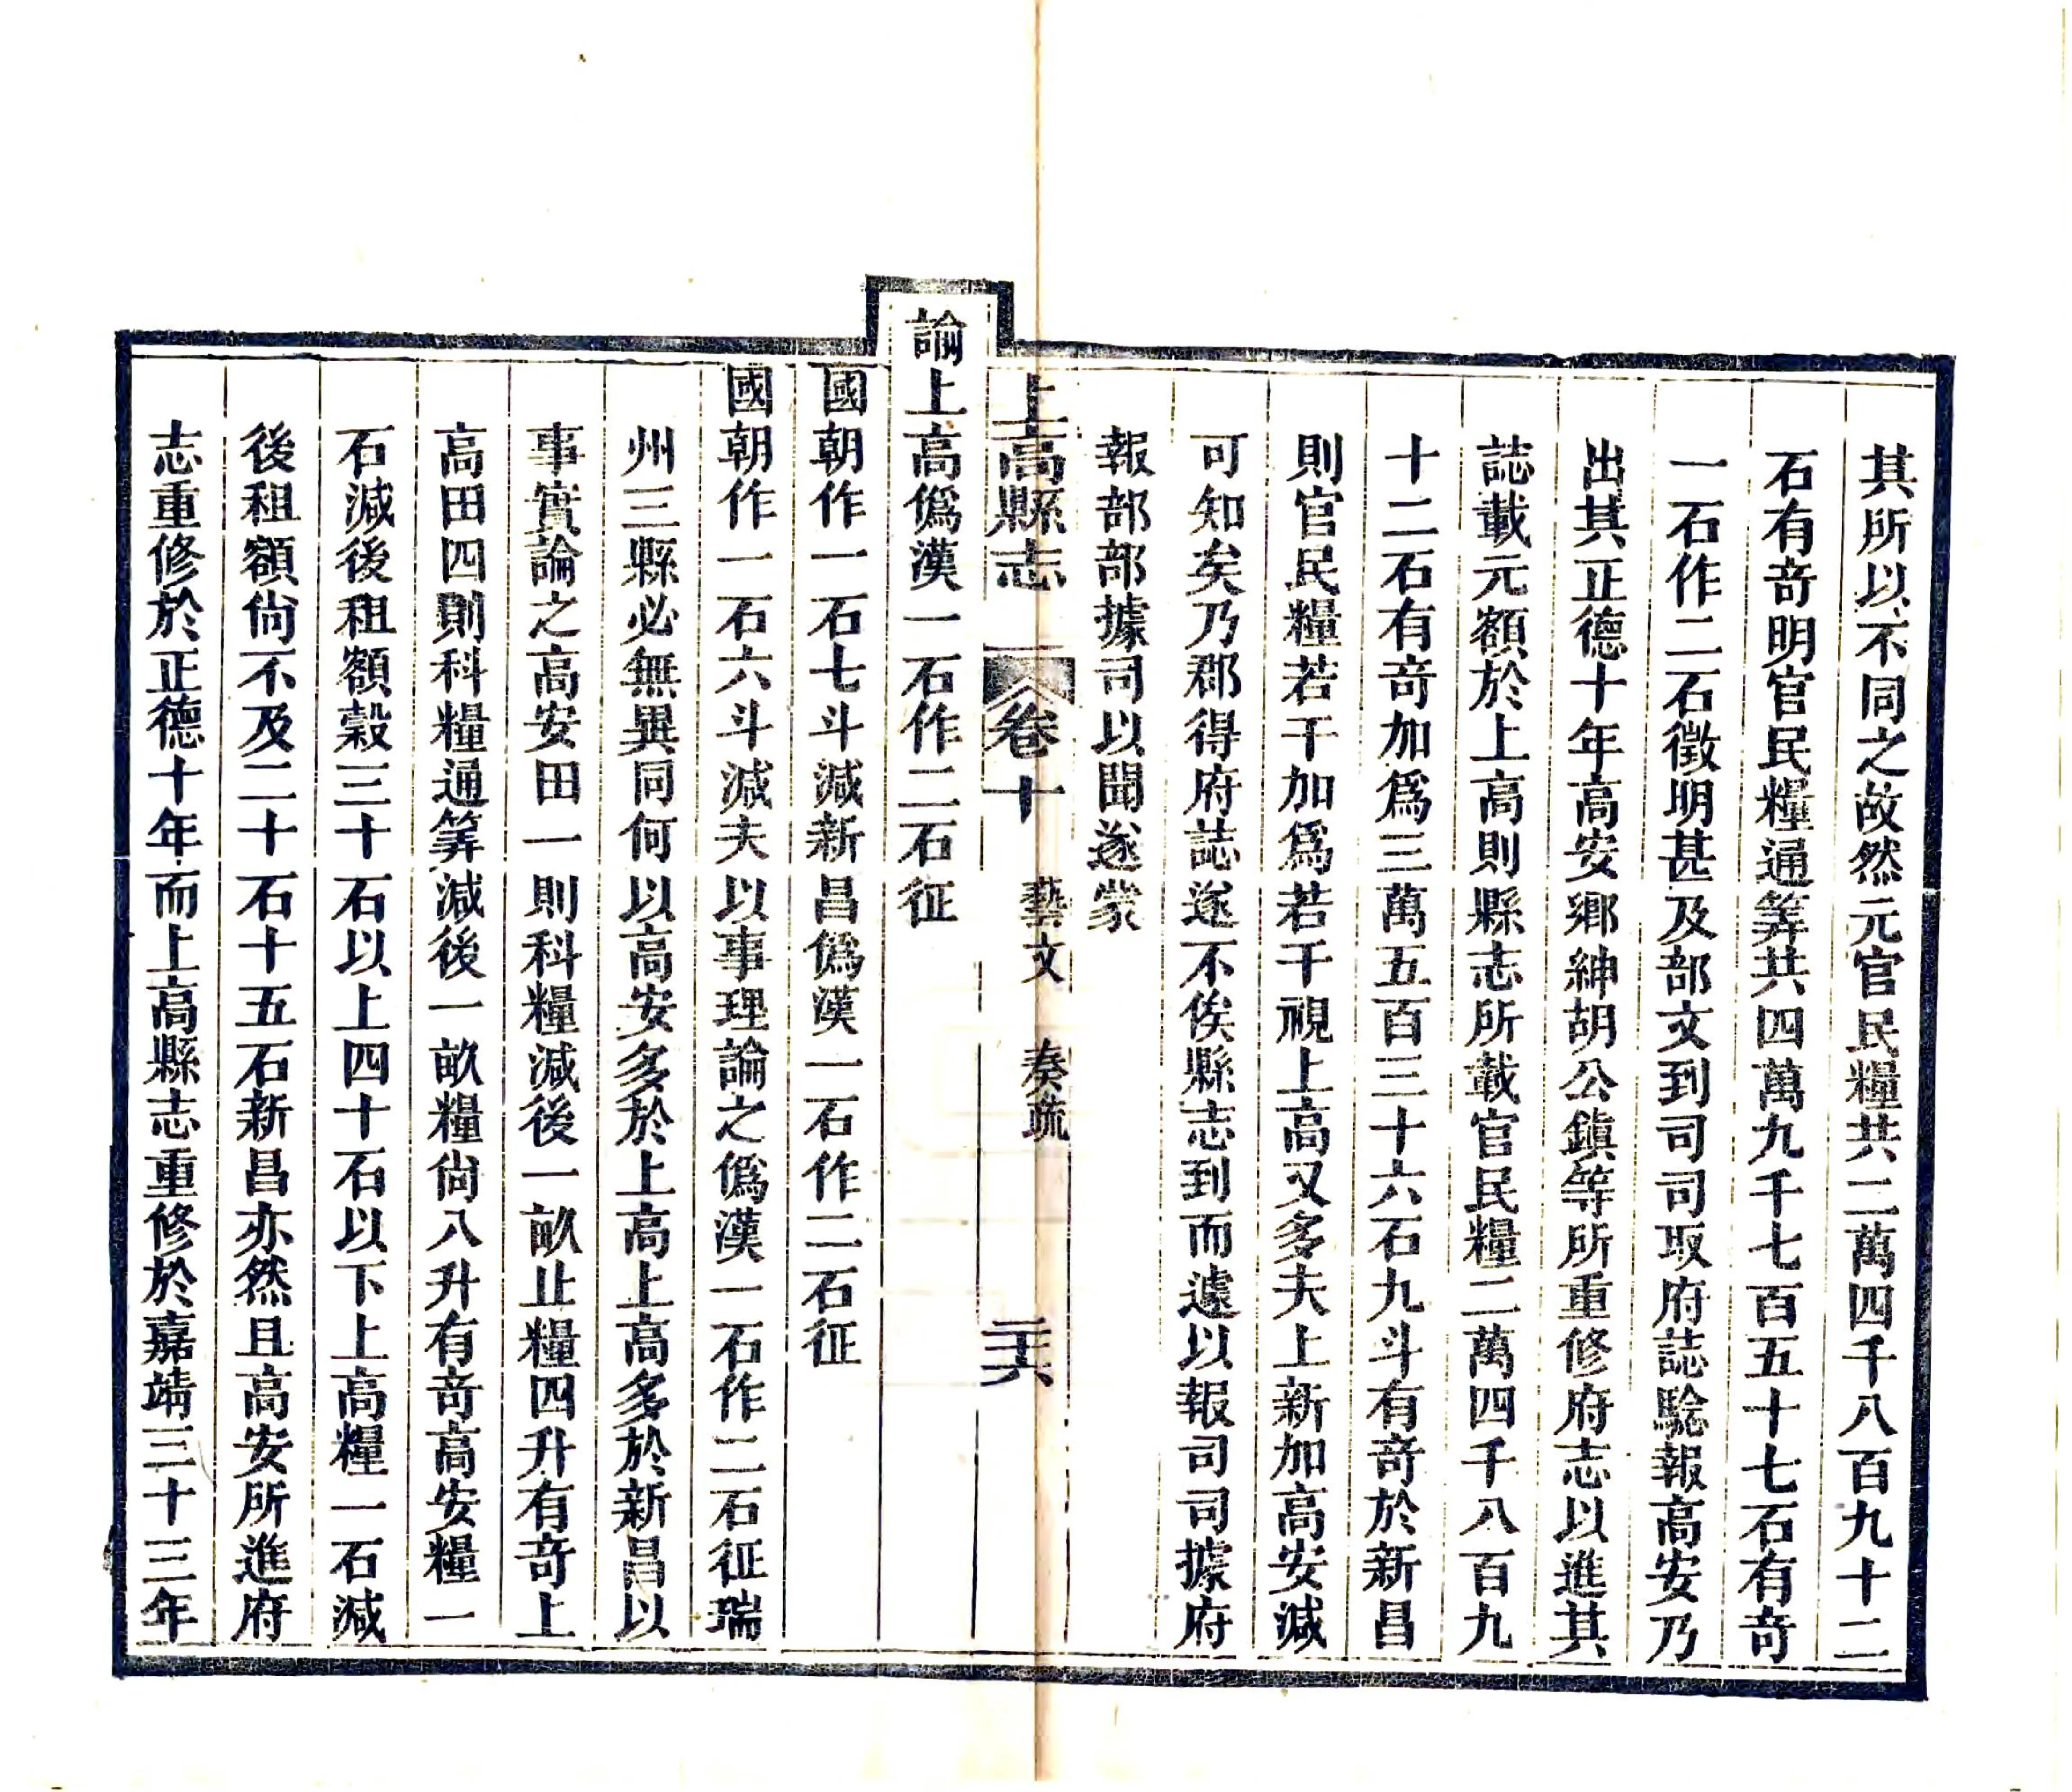 其所以不同之故然元官民糧共二萬四千八百九十二
石有奇明官民糧通筭共四萬九千七百五十七石有奇
一石作二石徵明甚及部文到司司取府誌騐報高安乃
出其正德十年高安鄉紳胡公鎮等所重修府志以進其
誌載元額於上高則縣志所載官民糧二萬四千八百九
十二石有奇加為三萬五百三十六石九斗有奇於新昌
則官民糧若干加為若干視上高又多夫上新加高安減
可知矣乃郡得府誌遂不俟縣志到而遽以報司司據府
報部部據司以聞遂蒙
上高縣志 卷十 藝文 奏疏 二十六
論上高僞漢一石作二石征
國朝作一石七斗減新昌僞漢一石作二石征
國朝作一石六斗減夫以事理論之僞漢一石作二石征瑞
州三縣必無異同何以高安多於上高上高多於新昌以
事實論之高安田一則科糧減後一畝止糧四升有奇上
高田四則科糧通筭減後一畝糧尙八升有奇高安糧一
石減後租額穀三十石以上四十石以下上高糧一石減
後租額尙不及二十石十五石新昌亦然且高安所進府
志重修於正德十年而上高縣志重修於嘉靖三十三年